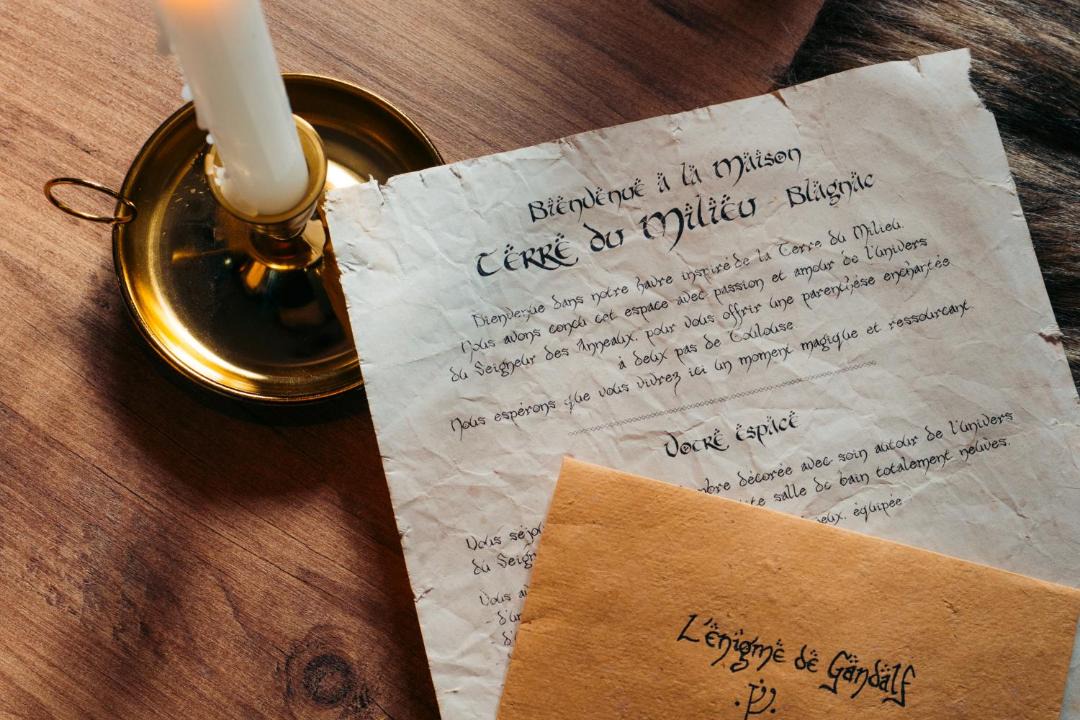 Bienvenue à la Maison
Terre du Milieu Blagnac
Bienvenue dans notre havre inspiré de la Terre du Milieu.
Nous avons conçu cet espace avec passion et amour de l'univers
du Seigneur des Anneaux, pour vous offrir une parenthèse enchantée
à deux pas de Toulouse
Nous espérons que vous vivrez ici un moment magique et ressourçant
Votre espace
décorée avec soin autour de l'univers
salle de bain totalement neuves.
équipée
Vous
du
Vous
L'énigme de Gandalf